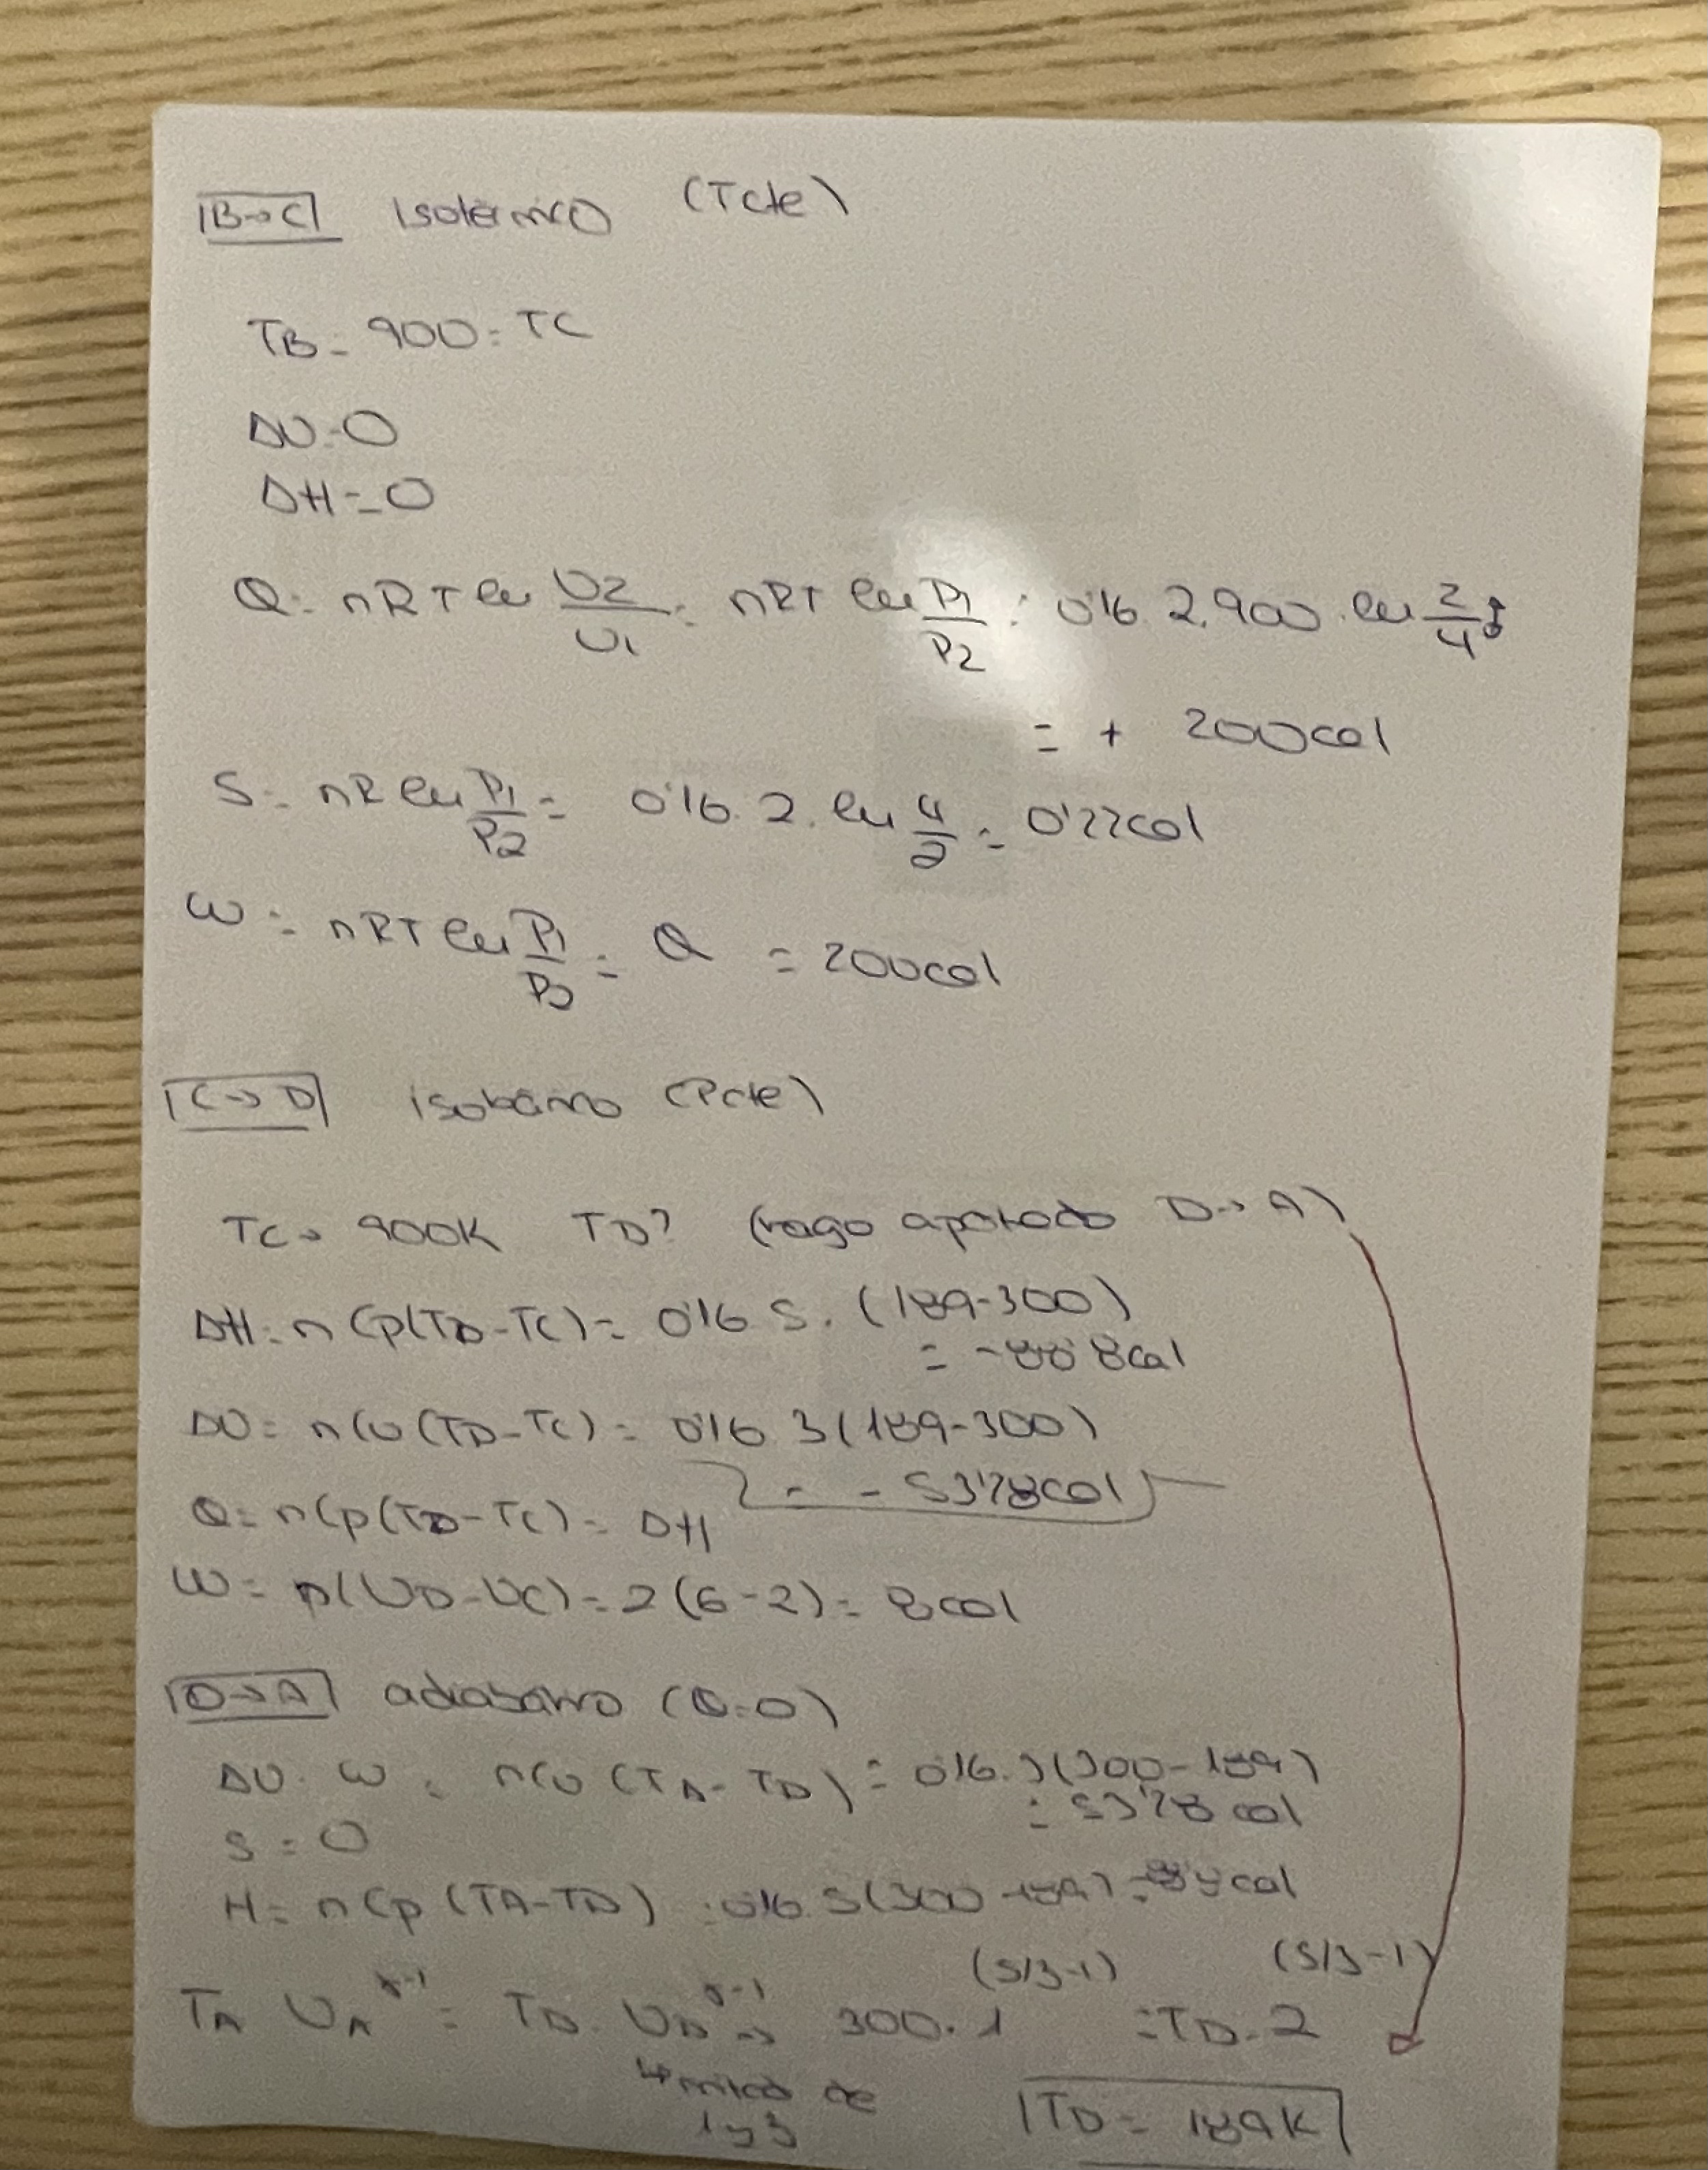 B→C isotérmico (Tcte)
TB = 900 = TC
ΔU = 0
ΔH = 0
Q = nRT ln U2/U1 = nRT ln P1/P2 = 0'16 · 2 · 900 · ln 2/4
= + 200cal
S = nR ln P1/P2 = 0'16 · 2 · ln 4/2 = 0'22cal
W = nRT ln P1/P2 = Q = 200cal
C→D isobárico (Pcte)
TC → 900K TD? (hago apartado D→A)
ΔH = n Cp(TD-TC) = 0'16 · 5 · (189-300)
= -88'8cal
ΔU = n Cv (TD-TC) = 0'16 · 3 (189-300)
= - 53'28cal
Q = n Cp (TD-TC) = ΔH
W = p(VD-VC) = 2(6-2) = 8cal
D→A adiabático (Q=0)
ΔU = W = n Cv (TA-TD) = 0'16 · 3 (300-189)
= 53'28 cal
S = 0
H = n Cp (TA-TD) = 0'16 · 5 (300-189) = cal
(5/3-1) (5/3-1)
TA VA^γ-1 = TD · VD^γ-1 → 300 · 1 = TD · 2
↳ mitad de
1 y 3
TD = 189K